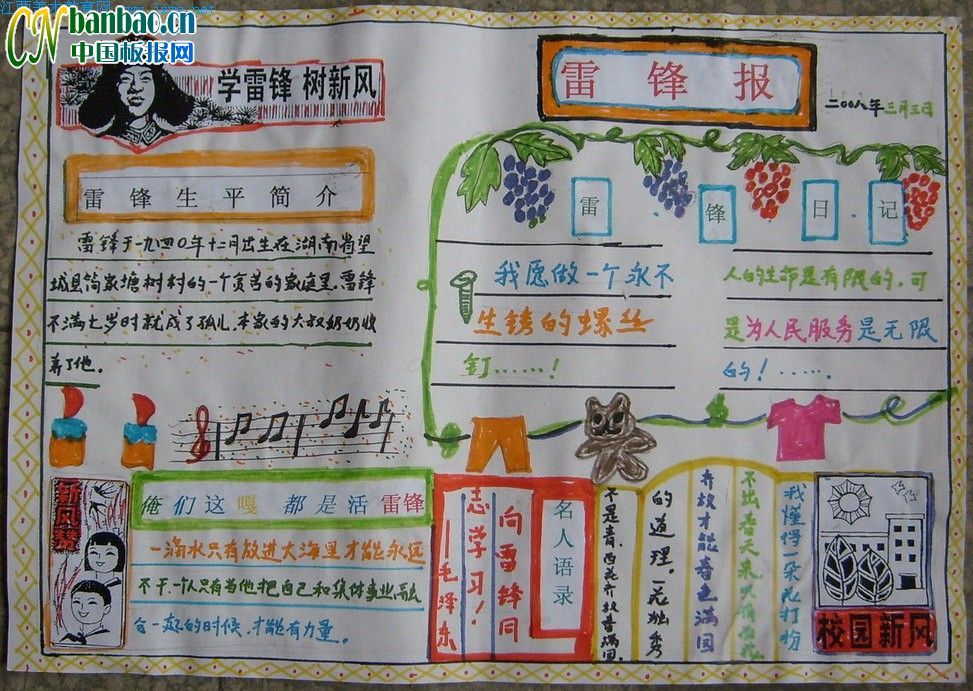 江西美术教育网
CN banbao.cn
中国板报网
学雷锋 树新风
雷锋报
二00八年三月三日
雷锋生平简介
雷锋于一九四0年十二月出生在湖南省望
城县简家塘树村的一个贫苦的家庭里.雷锋
不满七岁时就成了孤儿.本家的大叔奶奶收
养了他。
雷.锋日.记
我愿做一个永不
生锈的螺丝
钉……!
人的生命是有限的,可
是为人民服务是无限
的!……。
新风赞
俺们这嘎都是活雷锋
一滴水只有放进大海里才能永远
不干一个人只有当他把自己和集体事业融
合一起的时候,才能有力量。
名人语录
向雷锋同
志学习!
——毛泽东
我懂得一朵花打扮
不出春天来,只有百花
齐放才能春色满园
的道理。一花独秀
不是春,百花齐放春满园。
校园新风